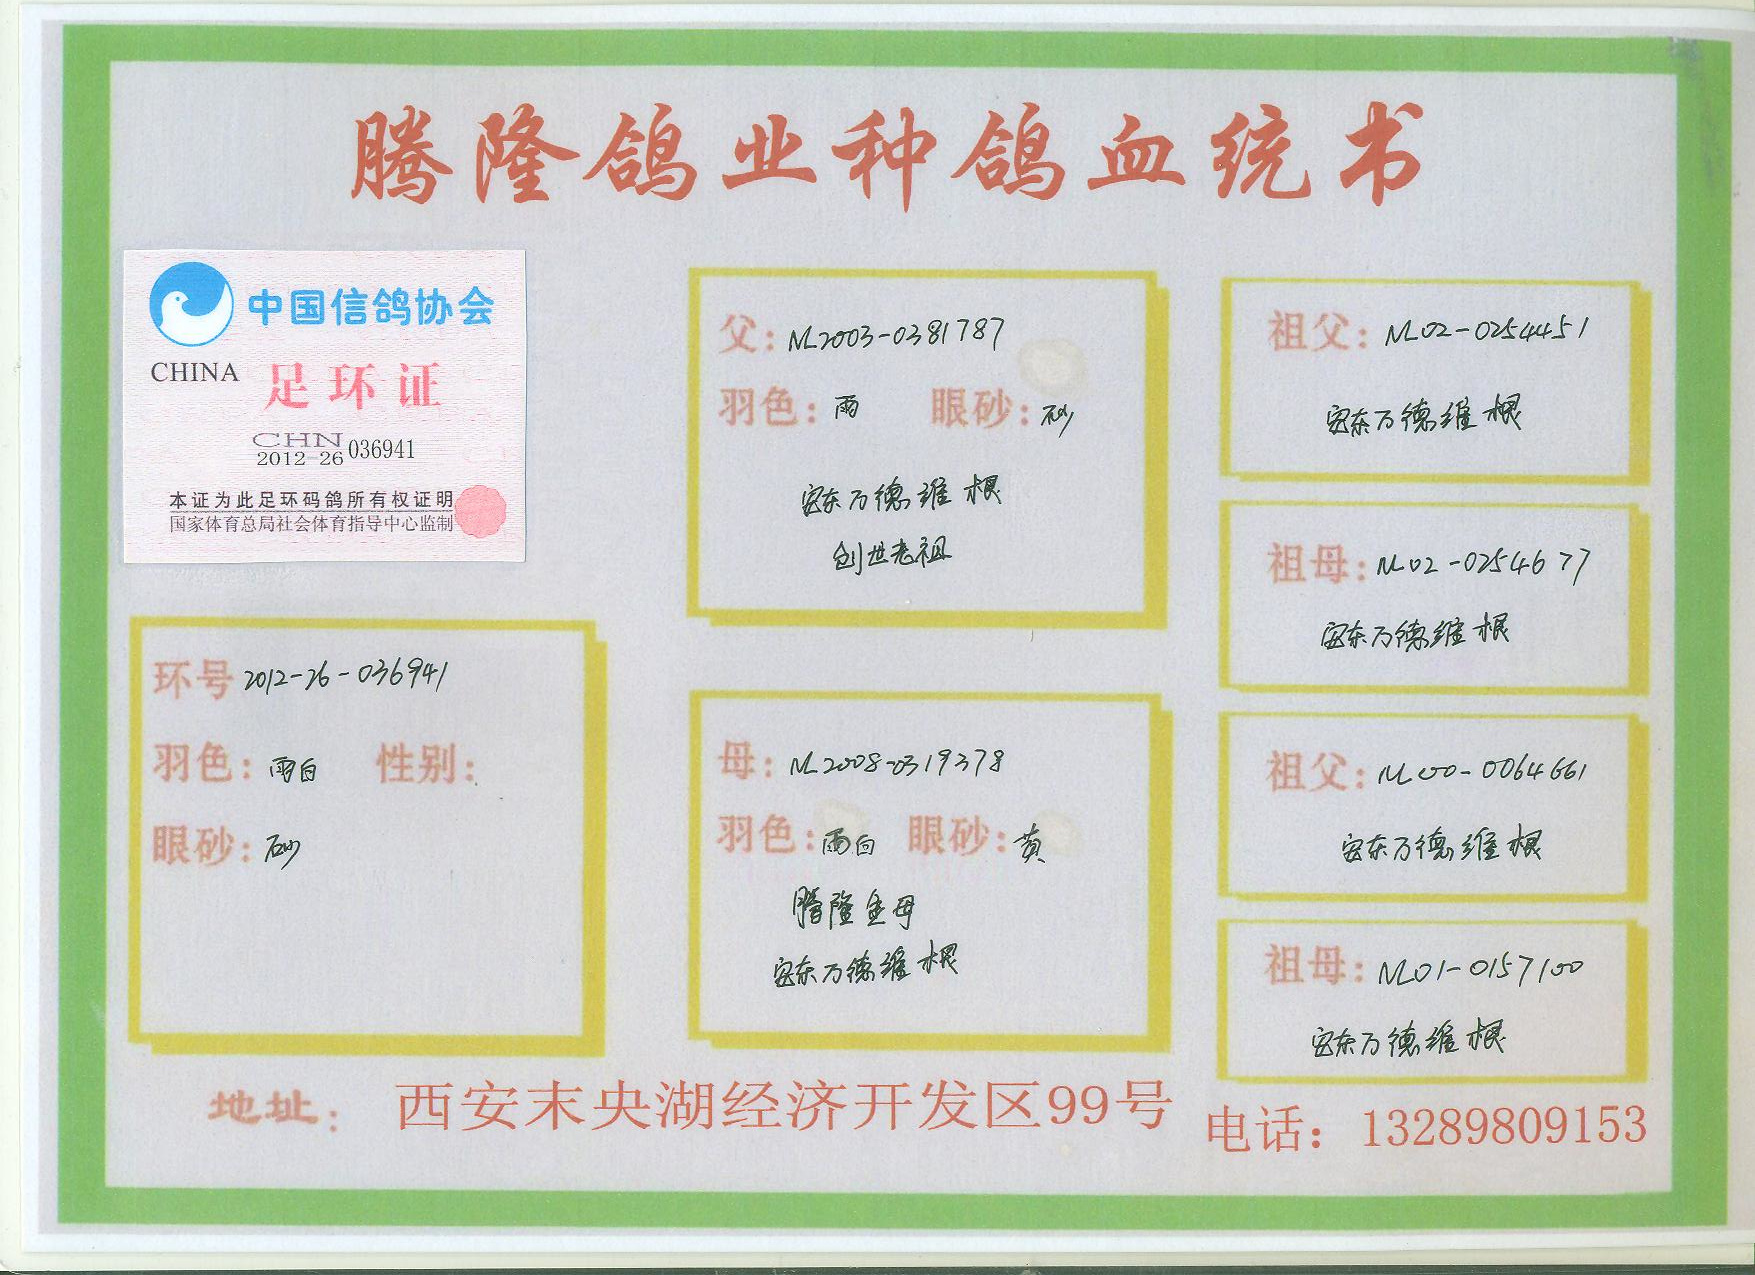 腾隆鸽业种鸽血统书
中国信鸽协会
CHINA
足环证
CHN
2012-26 036941
本证为此足环码鸽所有权证明
国家体育总局社会体育指导中心监制
环号 2012-26-036941
羽色：雨白 性别：
眼砂：砂
父：NL2003-0381787
羽色：雨 眼砂：砂
安东万德维根
创世老祖
母：NL2008-0319378
羽色：雨白 眼砂：黄
腾隆金母
安东万德维根
祖父：NL02-0254451
安东万德维根
祖母：NL02-0254677
安东万德维根
祖父：NL00-0064661
安东万德维根
祖母：NL01-0157100
安东万德维根
地址：西安末央湖经济开发区99号
电话：13289809153